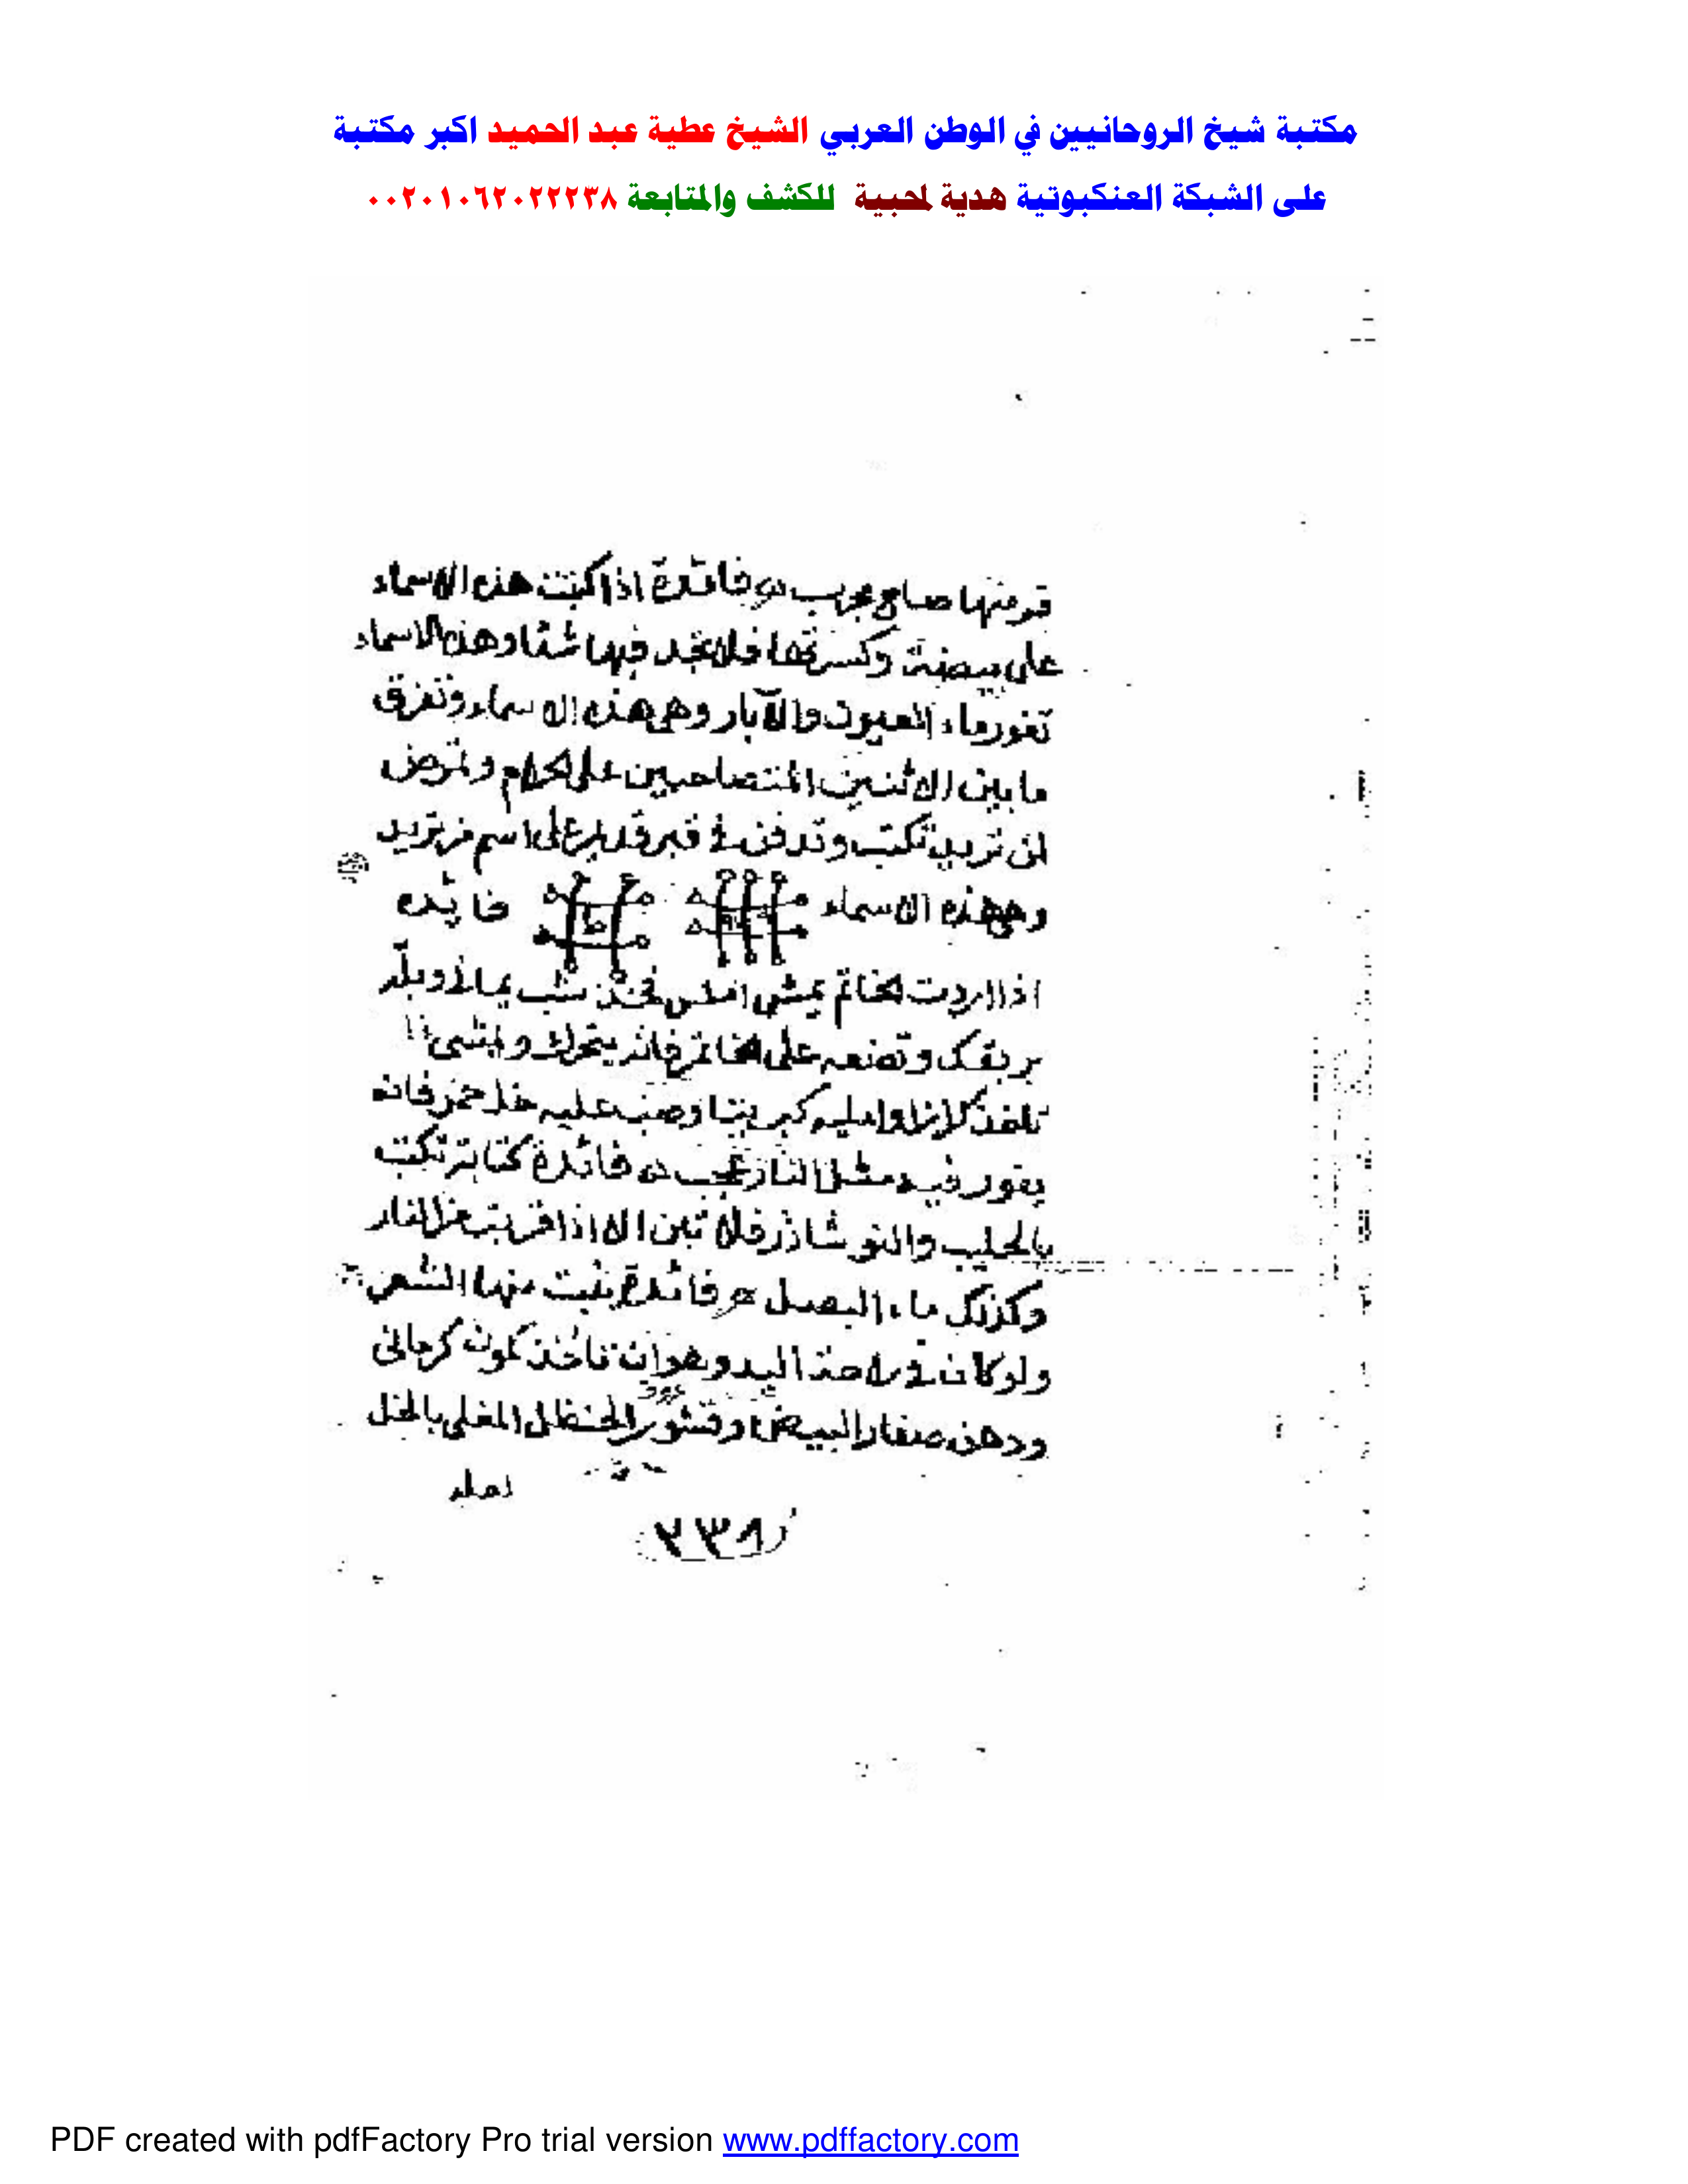 مكتبة شيخ الروحانيين في الوطن العربي الشيخ عطية عبد الحميد اكبر مكتبة
على الشبكة العنكبوتية هدية لمحبية للكشف والمتابعة ٠٠٢٠١٠٦٢٠٢٢٢٣٨
منها صاح مجرب فائدة اذا كتبت هذه الاسماء
على بيضة وكسرتها فلا تجد فيها شئا وهذه الاسماء
تغور ماء العيون والآبار وهي هذه الاسماء وتفرق
ما بين الاثنين المتصاحبين على الحرام وتمرض
لمن تريد تكتب وتدفن في قبر على اسم من تريد
وهي هذه الاسماء فايده
اذا اردت الخاتم يمشي فخذ شب يماني وبله
بريقك وتضعه على الخاتم فانه يتحرك ويمشي
تاخذ كبريتا وصب عليه خل خمر فانه
يفور فيه مثل النار عجيب فائدة كتابة تكتب
بالحليب والنوشاذر فلا تبن الا اذا قربت من النار
وكذلك ماء البصل فائدة ينبت منها الشعر
ولو كان في راحة اليد وهو ان تاخذ كمون كرماني
ودهن صفار البيض وقشور الحنظل المغلي بالخل
٢٣٨
PDF created with pdfFactory Pro trial version www.pdffactory.com